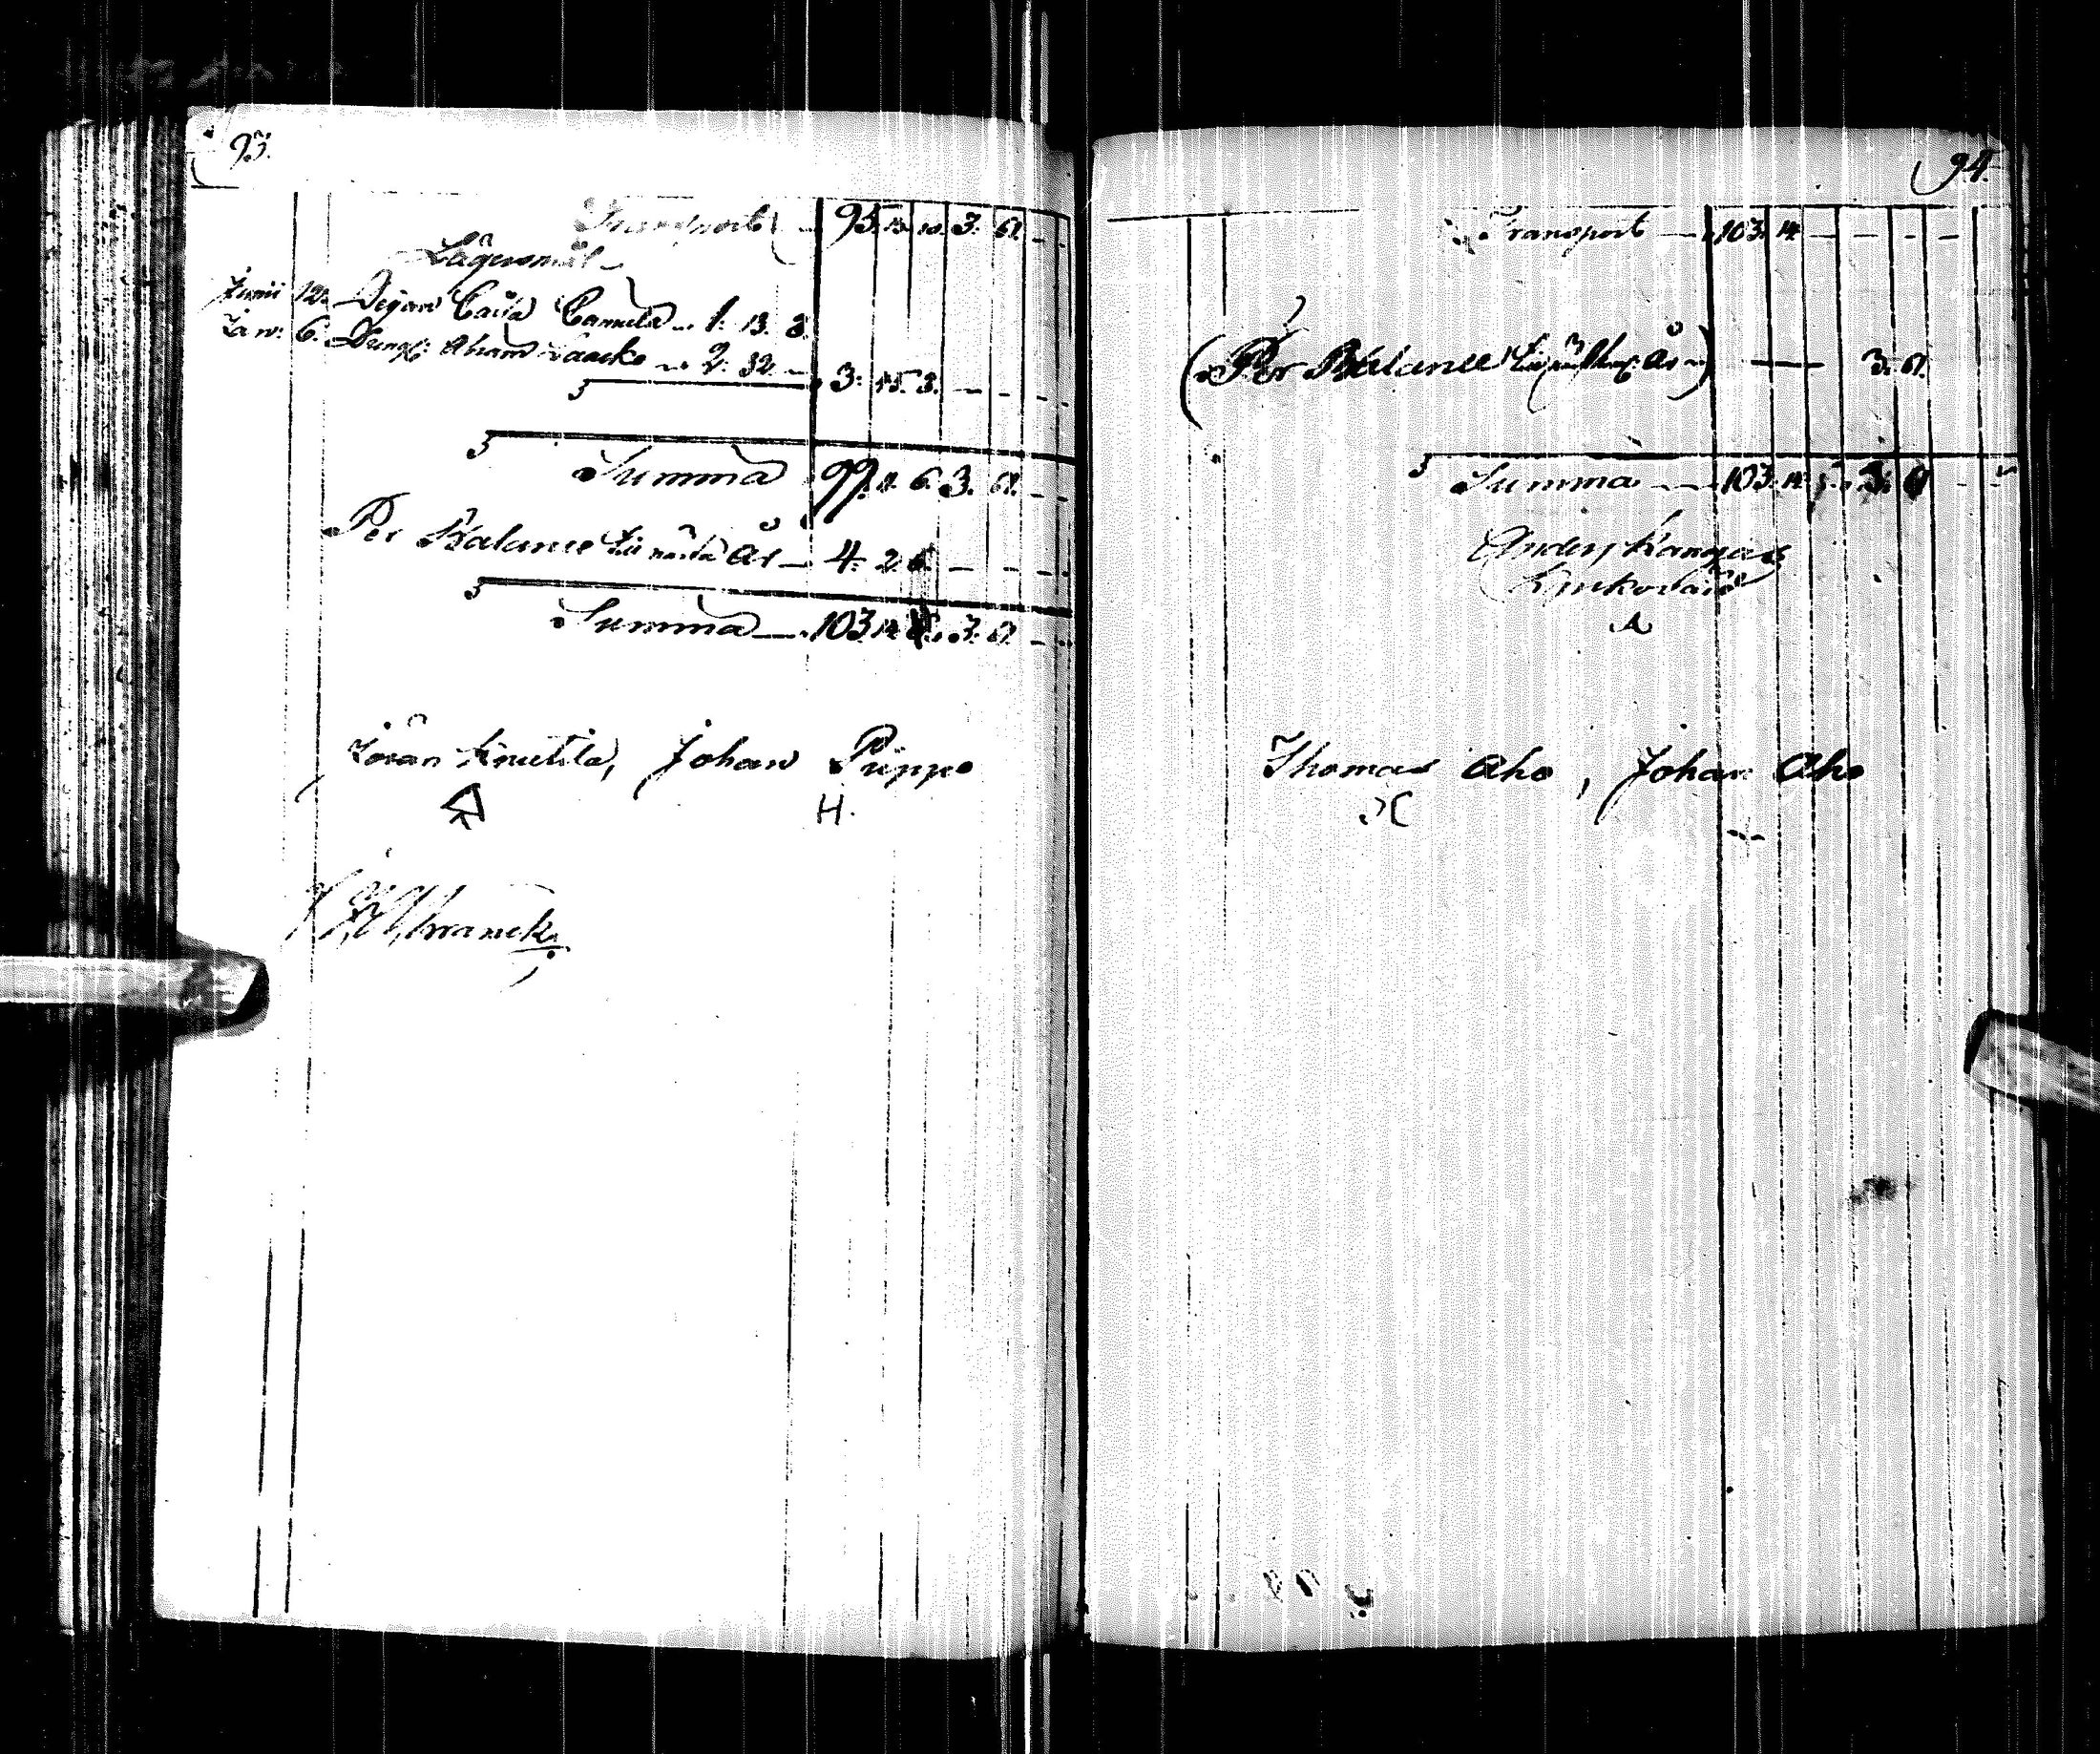 93.
Transport 95. 13. 10. 3. 61. -
Lägersmål
Junii 12. Pigan Caisa Camula 1. 13. 3.
6. Drängs: Abram Laacko 2. 32. - 3. 45. 3. - - -
Summa 99. 11. 6. 3. 61. - -
Per Balance till nästa År - 4. 2. 6. - - -
Summa 103. 14. 3. 61. - -
Jöran Knutila, Johan Püppo
H.
94.
Transport 103. 14. - - - -
(Per Balance till År) 3. 61.
Summa 103. 14. 3. 61 - -
Anders Kangas
Kyrkovärd
A
Thomas Aho, Johan Aho